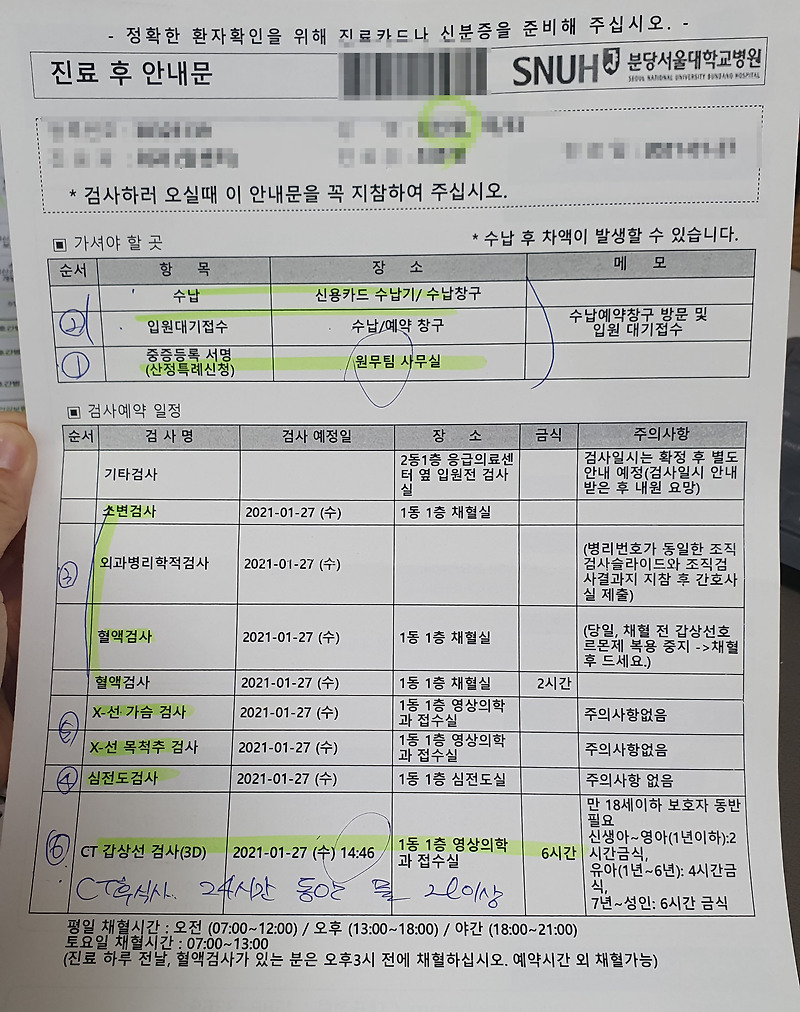 - 정확한 환자확인을 위해 진료카드나 신분증을 준비해 주십시오. -
진료 후 안내문
SNUH 분당서울대학교병원
SEOUL NATIONAL UNIVERSITY BUNDANG HOSPITAL
* 검사하러 오실때 이 안내문을 꼭 지참하여 주십시오.
▣ 가셔야 할 곳 * 수납 후 차액이 발생할 수 있습니다.
순서 항 목 장 소 메 모
수납 신용카드 수납기/ 수납창구
② 입원대기접수 수납/예약 창구 수납예약창구 방문 및
입원 대기접수
① 중증등록 서명
(산정특례신청) 원무팀 사무실
▣ 검사예약 일정
순서 검 사 명 검사 예정일 장 소 금식 주의사항
기타검사 2동1층 응급의료센
터 옆 입원전 검사
실 검사일시는 확정 후 별도
안내 예정(검사일시 안내
받은 후 내원 요망)
소변검사 2021-01-27 (수) 1동 1층 채혈실
③ 외과병리학적검사 2021-01-27 (수) (병리번호가 동일한 조직
검사슬라이드와 조직검
사결과지 지참 후 간호사
실 제출)
혈액검사 2021-01-27 (수) 1동 1층 채혈실 (당일, 채혈 전 갑상선호
르몬제 복용 중지 ->채혈
후 드세요.)
혈액검사 2021-01-27 (수) 1동 1층 채혈실 2시간
X-선 가슴 검사 2021-01-27 (수) 1동 1층 영상의학
과 접수실 주의사항없음
X-선 목척추 검사 2021-01-27 (수) 1동 1층 영상의학
과 접수실 주의사항없음
④ 심전도검사 2021-01-27 (수) 1동 1층 심전도실 주의사항 없음
⑥ CT 갑상선 검사(3D) 2021-01-27 (수) 14:46 1동 1층 영상의학
과 접수실 6시간 만 18세이하 보호자 동반
필요
신생아~영아(1년이하):2
시간금식,
유아(1년~6년): 4시간금
식,
7년~성인: 6시간 금식
CT후식사. 24시간 동안 물 2l이상
평일 채혈시간 : 오전 (07:00~12:00) / 오후 (13:00~18:00) / 야간 (18:00~21:00)
토요일 채혈시간 : 07:00~13:00
(진료 하루 전날, 혈액검사가 있는 분은 오후3시 전에 채혈하십시오. 예약시간 외 채혈가능)